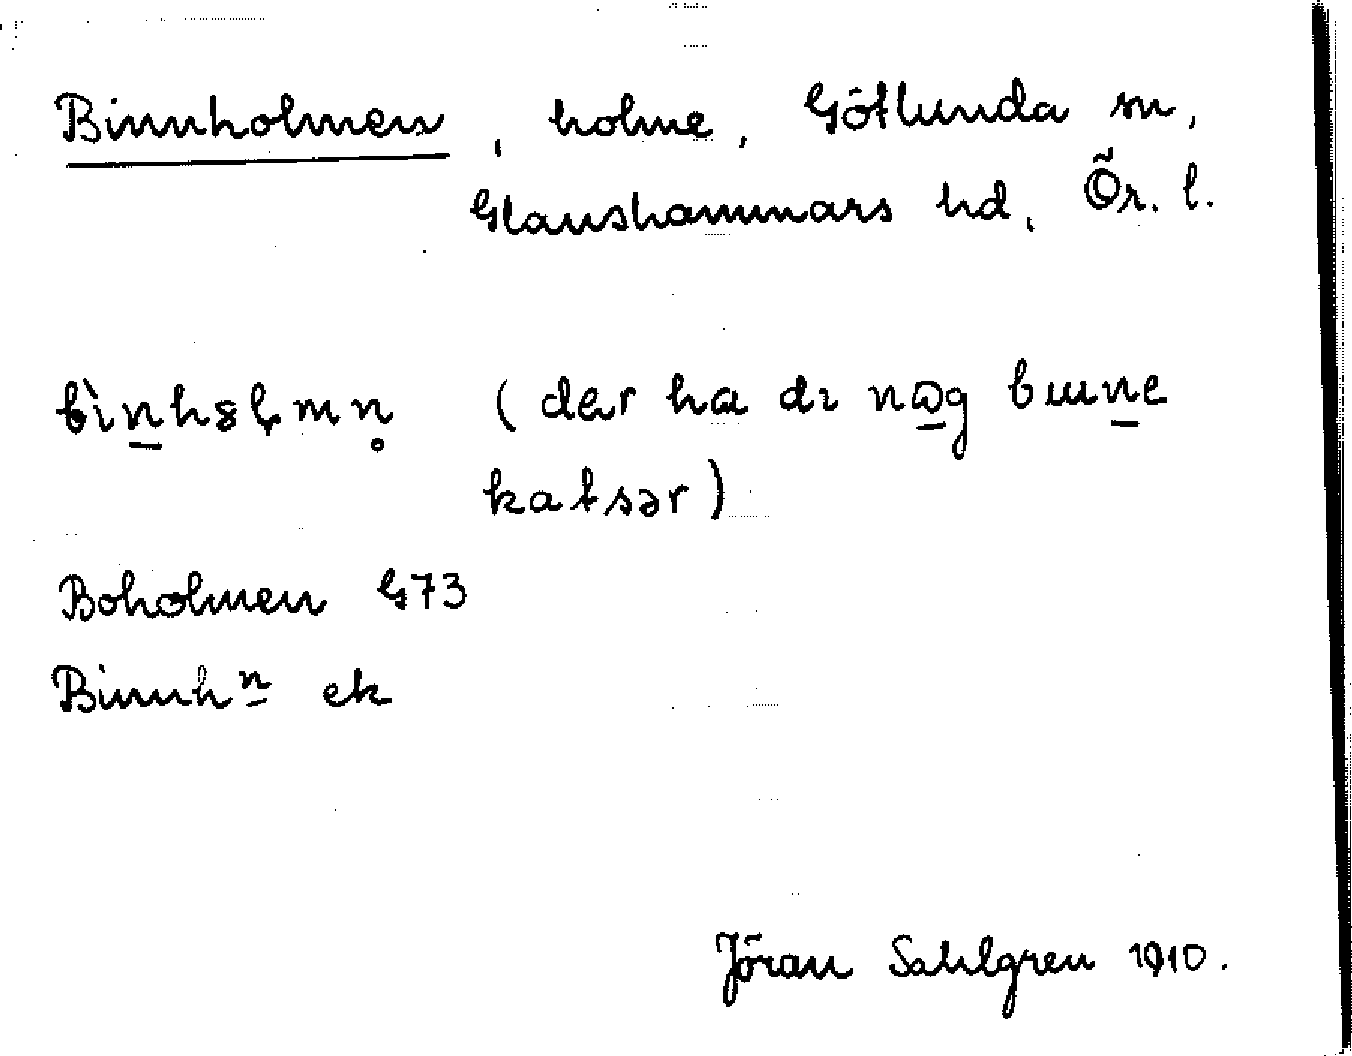 Binnholmen, holme, Götlunda sn,
Glanshammars hd, Ör. l.
bìn̲hȣlmn̥ (dær ha dı nɷ̲g bɯn̲e
katsər)
Boholmen G73
Binnhn̲ ek
Jöran Sahlgren 1910.